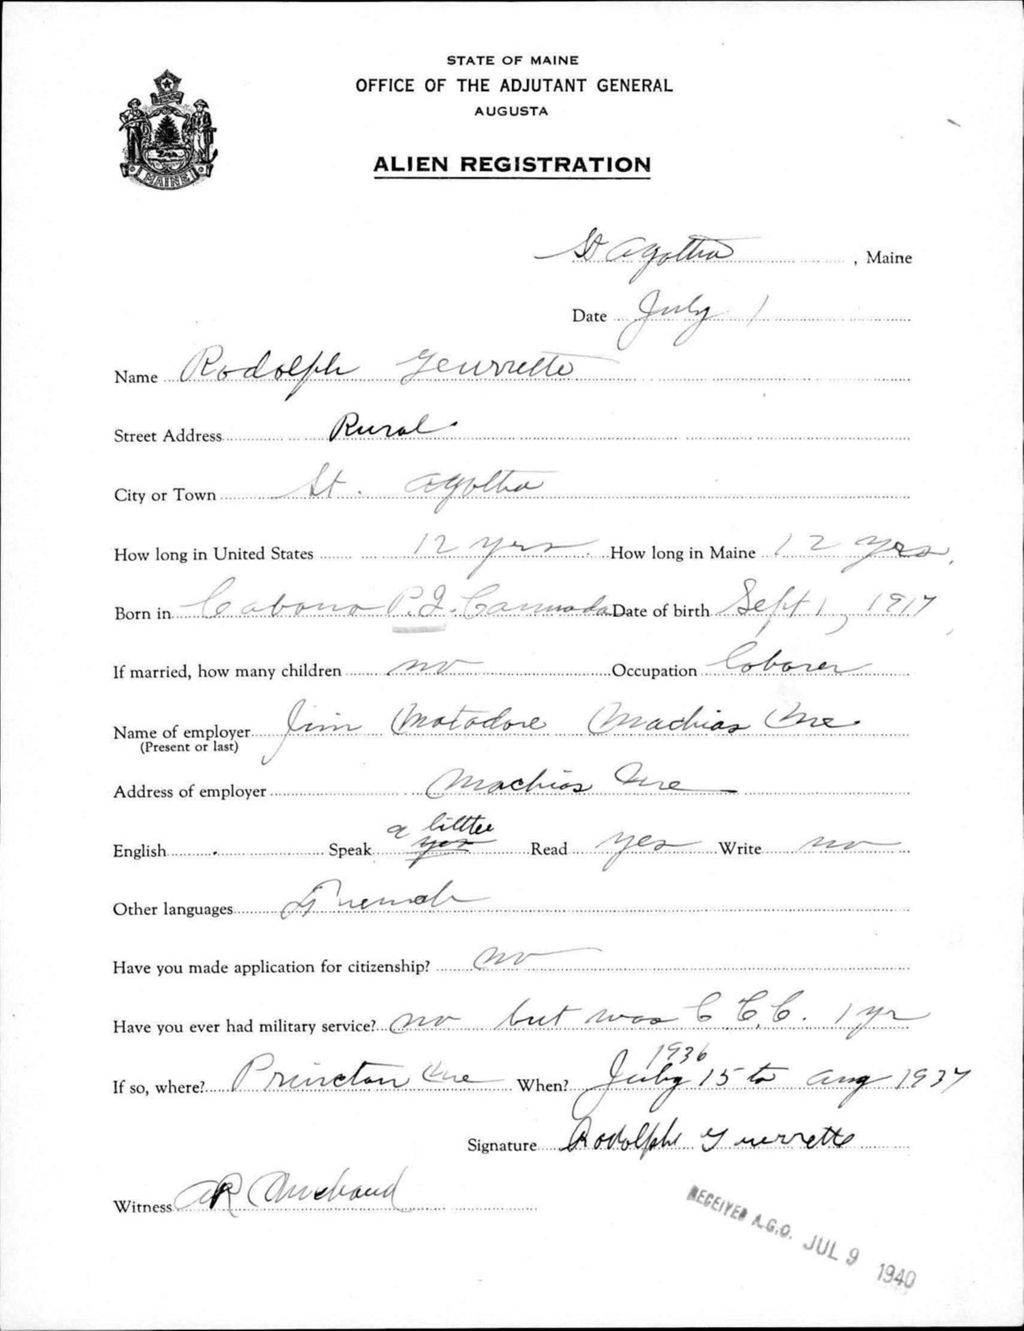 STATE OF MAINE
OFFICE OF THE ADJUTANT GENERAL
AUGUSTA
ALIEN REGISTRATION
MAINE
St Agotha, Maine
Date July 1
Name Rodolph Geurrette
Street Address Rural
City or Town St. Agotha
How long in United States 12 yrs How long in Maine 12 yrs,
Born in Cabano P.Q. Cannada Date of birth Sept 1, 1917
If married, how many children no Occupation Laborer
Name of employer Jim Matadore Machias Me.
(Present or last)
Address of employer Machias Me
a little
English Speak yes Read yes Write no
Other languages French
Have you made application for citizenship? no
Have you ever had military service? no but was C.C.C. 1 yr
1936
If so, where? Princton Me When? July 15 to Aug 1937
Signature Rodolphe Guerrette
Witness AR Michaud
RECEIVED A.G.O. JUL 9 1940